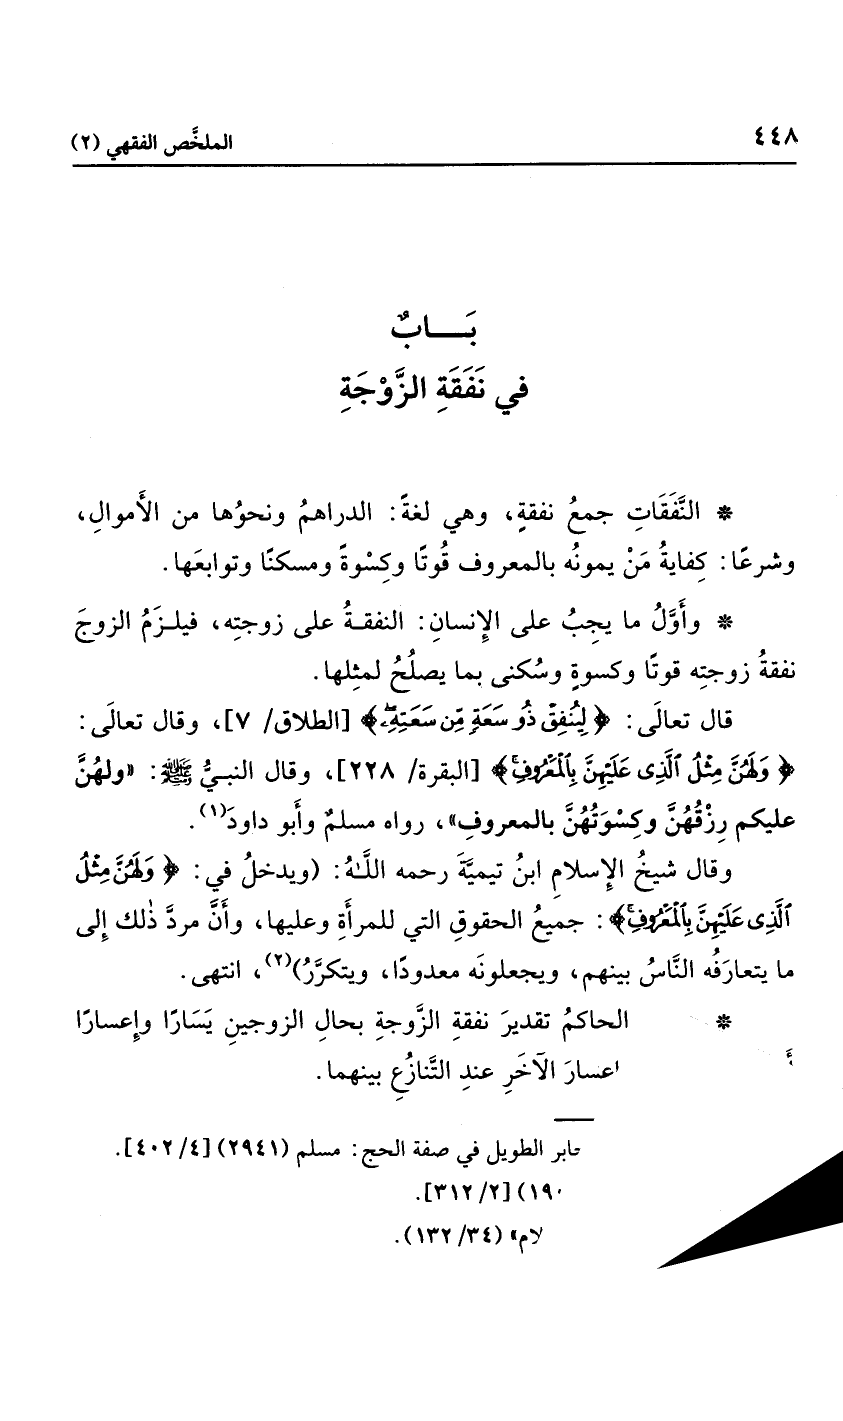 ٤٤٨
الملخَّص الفقهي (٢)
بَـــابٌ
في نَفَقَةِ الزَّوْجَةِ
* النَّفَقَاتِ جمعُ نفقةٍ، وهي لغةً: الدراهمُ ونحوُها من الأَموالِ،
وشرعًا: كِفايةُ مَنْ يمونُه بالمعروف قُوتًا وكِسْوةً ومسكنًا وتوابعَها.
* وأَوَّلُ ما يجبُ على الإِنسانِ: النفقـةُ على زوجتِه، فيلـزَمُ الزوجَ
نفقةُ زوجتِه قوتًا وكسوةٍ وسُكنى بما يصلُحُ لمثلِها.
قال تعالَى: ﴿ لِيُنفِقْ ذُو سَعَةٍ مِّن سَعَتِهِۦۖ ﴾ [الطلاق/ ٧]، وقال تعالَى:
﴿ وَلَهُنَّ مِثْلُ ٱلَّذِى عَلَيْهِنَّ بِٱلْمَعْرُوفِۚ ﴾ [البقرة/ ٢٢٨]، وقال النبيُّ ﷺ: «ولهُنَّ
عليكم رِزْقُهُنَّ وكِسْوَتُهُنَّ بالمعروفِ»، رواه مسلمٌ وأَبو داودَ(١).
وقال شيخُ الإِسلامِ ابنُ تيميَّةَ رحمه اللَّـهُ: (ويدخلُ في: ﴿ وَلَهُنَّ مِثْلُ
ٱلَّذِى عَلَيْهِنَّ بِٱلْمَعْرُوفِۚ ﴾: جميعُ الحقوقِ التي للمرأَةِ وعليها، وأَنَّ مردَّ ذٰلك إِلى
ما يتعارَفُه النَّاسُ بينهم، ويجعلونَه معدودًا، ويتكرَّرُ)(٢)، انتهى.
* الحاكمُ تقديرَ نفقةِ الزَّوجةِ بحالِ الزوجينِ يَسَارًا وإِعسارًا
اعسارَ الآخَرِ عندِ التَّنازُعِ بينهما.
جابر الطويل في صفة الحج: مسلم (٢٩٤١) [٤٠٢/٤].
١٩٠) [٣١٢/٢].
لام» (١٣٢/٣٤).